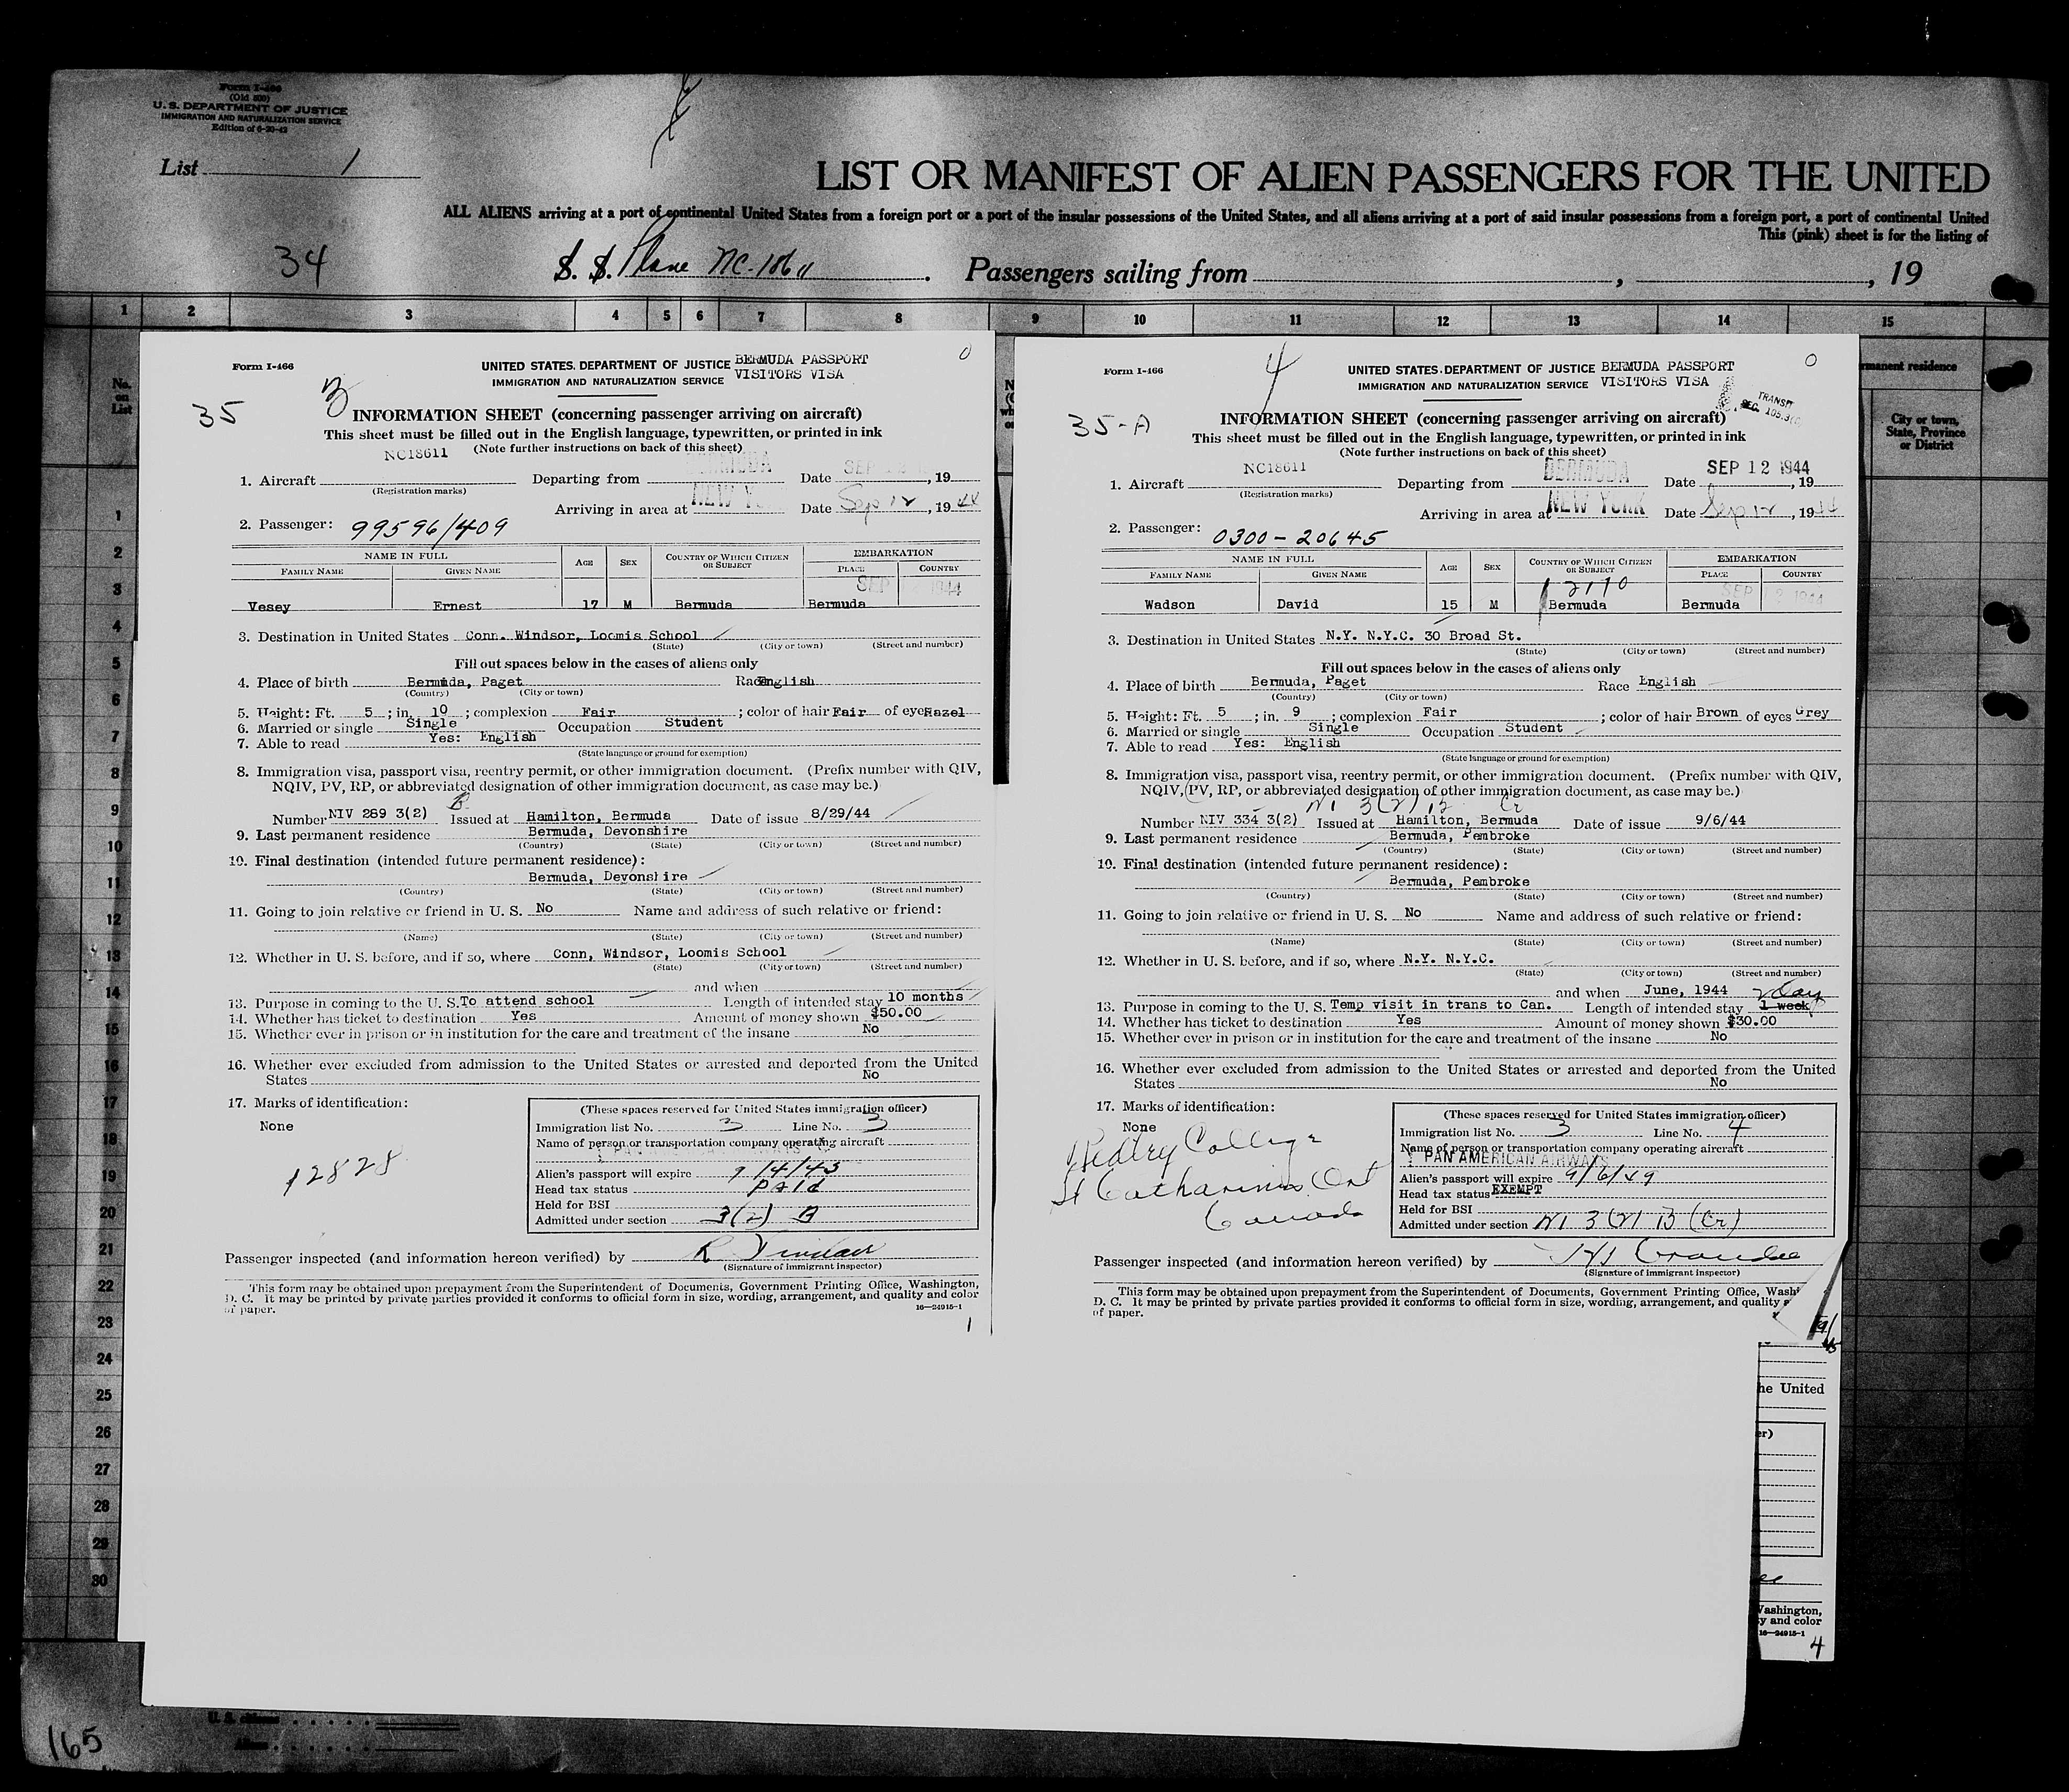 Form I-466
(Old 500)
U. S. DEPARTMENT OF JUSTICE
IMMIGRATION AND NATURALIZATION SERVICE
Edition of 6-20-43
List 1
LIST OR MANIFEST OF ALIEN PASSENGERS FOR THE UNITED
ALL ALIENS arriving at a port of continental United States from a foreign port or a port of the insular possessions of the United States, and all aliens arriving at a port of said insular possessions from a foreign port, a port of continental United
This (pink) sheet is for the listing of
34
S. S. Plane NC-186 11 . Passengers sailing from , , 19
1 2 3 4 5 6 7 8 9 10 11 12 13 14 15
No. on List
manent residence
City or town, State, Province or District
1
2
3
4
5
6
7
8
9
10
11
12
13
14
15
16
17
18
19
20
21
22
23
24
25
26
27
28
29
30
Form I-466
UNITED STATES DEPARTMENT OF JUSTICE BERMUDA PASSPORT
IMMIGRATION AND NATURALIZATION SERVICE VISITORS VISA
0
3
35
INFORMATION SHEET (concerning passenger arriving on aircraft)
This sheet must be filled out in the English language, typewritten, or printed in ink
(Note further instructions on back of this sheet)
NC18611
1. Aircraft Departing from BERMUDA Date SEP , 19
(Registration marks)
Arriving in area at NEW Y Date Sep 12 , 19 44
2. Passenger: 99596/409
NAME IN FULL AGE SEX COUNTRY OF WHICH CITIZEN OR SUBJECT EMBARKATION
FAMILY NAME GIVEN NAME PLACE COUNTRY
SEP 1944
Vesey Ernest 17 M Bermuda Bermuda
3. Destination in United States Conn. Windsor, Loomis School
(State) (City or town) (Street and number)
Fill out spaces below in the cases of aliens only
4. Place of birth Bermuda, Paget Race English
(Country) (City or town)
5. Height: Ft. 5 ; in. 10 ; complexion Fair ; color of hair Fair of eyes Hazel
6. Married or single Single Occupation Student
7. Able to read Yes: English
(State language or ground for exemption)
8. Immigration visa, passport visa, reentry permit, or other immigration document. (Prefix number with QIV,
NQIV, PV, RP, or abbreviated designation of other immigration document, as case may be.)
B
Number NIV 289 3(2) Issued at Hamilton, Bermuda Date of issue 8/29/44
9. Last permanent residence Bermuda, Devonshire
(Country) (State) (City or town) (Street and number)
10. Final destination (intended future permanent residence):
Bermuda, Devonshire
(Country) (State) (City or town) (Street and number)
11. Going to join relative or friend in U. S. No Name and address of such relative or friend:
(Name) (State) (City or town) (Street and number)
12. Whether in U. S. before, and if so, where Conn, Windsor, Loomis School
(State) (City or town) (Street and number)
and when
13. Purpose in coming to the U. S. To attend school Length of intended stay 10 months
14. Whether has ticket to destination Yes Amount of money shown $50.00
15. Whether ever in prison or in institution for the care and treatment of the insane No
16. Whether ever excluded from admission to the United States or arrested and deported from the United
States No
17. Marks of identification:
None
12828
(These spaces reserved for United States immigration officer)
Immigration list No. 3 Line No. 3
Name of person or transportation company operating aircraft
Alien's passport will expire 9/4/43
Head tax status Paid
Held for BSI
Admitted under section 3(2) B
Passenger inspected (and information hereon verified) by
(Signature of immigrant inspector)
This form may be obtained upon prepayment from the Superintendent of Documents, Government Printing Office, Washington,
D. C. It may be printed by private parties provided it conforms to official form in size, wording, arrangement, and quality and color
of paper.
16—24915-1
1
Form I-466
4
UNITED STATES DEPARTMENT OF JUSTICE BERMUDA PASSPORT
IMMIGRATION AND NATURALIZATION SERVICE VISITORS VISA
0
TRANSIT
35-A
INFORMATION SHEET (concerning passenger arriving on aircraft)
This sheet must be filled out in the English language, typewritten, or printed in ink
(Note further instructions on back of this sheet)
NC18611
1. Aircraft Departing from BERMUDA Date SEP 12 1944 , 19
(Registration marks)
Arriving in area at NEW YORK Date Sep 12 , 19 44
2. Passenger: 0300-20645
NAME IN FULL AGE SEX COUNTRY OF WHICH CITIZEN OR SUBJECT EMBARKATION
FAMILY NAME GIVEN NAME PLACE COUNTRY
12110 SEP 12 1944
Wadson David 15 M Bermuda Bermuda
3. Destination in United States N.Y. N.Y.C. 30 Broad St.
(State) (City or town) (Street and number)
Fill out spaces below in the cases of aliens only
4. Place of birth Bermuda, Paget Race English
(Country) (City or town)
5. Height: Ft. 5 ; in. 9 ; complexion Fair ; color of hair Brown of eyes Grey
6. Married or single Single Occupation Student
7. Able to read Yes: English
(State language or ground for exemption)
8. Immigration visa, passport visa, reentry permit, or other immigration document. (Prefix number with QIV,
NQIV, PV, RP, or abbreviated designation of other immigration document, as case may be.)
NI 3(2) B Cr
Number NIV 334 3(2) Issued at Hamilton, Bermuda Date of issue 9/6/44
9. Last permanent residence Bermuda, Pembroke
(Country) (State) (City or town) (Street and number)
10. Final destination (intended future permanent residence):
Bermuda, Pembroke
(Country) (State) (City or town) (Street and number)
11. Going to join relative or friend in U. S. No Name and address of such relative or friend:
(Name) (State) (City or town) (Street and number)
12. Whether in U. S. before, and if so, where N.Y. N.Y.C.
(State) (City or town) (Street and number)
and when June, 1944 2 day
13. Purpose in coming to the U. S. Temp visit in trans to Can. Length of intended stay 1 week
14. Whether has ticket to destination Yes Amount of money shown $30.00
15. Whether ever in prison or in institution for the care and treatment of the insane No
16. Whether ever excluded from admission to the United States or arrested and deported from the United
States No
17. Marks of identification:
None
Redley College
St Catharines Ont
Canada
(These spaces reserved for United States immigration officer)
Immigration list No. 3 Line No. 4
Name of person or transportation company operating aircraft
PAN AMERICAN AIRWAYS
Alien's passport will expire 9/6/49
Head tax status EXEMPT
Held for BSI
Admitted under section NI 3(2) B (Cr)
Passenger inspected (and information hereon verified) by
(Signature of immigrant inspector)
This form may be obtained upon prepayment from the Superintendent of Documents, Government Printing Office, Wash
D. C. It may be printed by private parties provided it conforms to official form in size, wording, arrangement, and quality
of paper.
he United
er)
Washington,
y and color
16—24915-1
4
U. S. citizens
Aliens
165